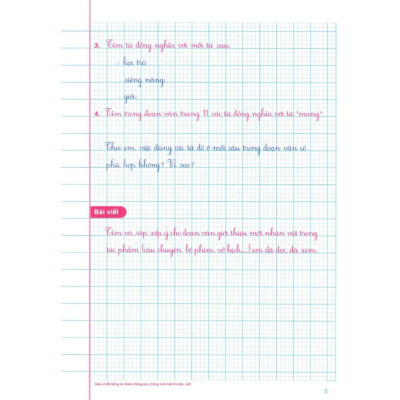 3. Tìm từ đồng nghĩa với mỗi từ sau:
- học trò:
- siêng năng:
- giỏi:
4. Tìm trong đoạn văn trang 11, các từ đồng nghĩa với từ "mang".
Theo em, việc dùng các từ đó ở mỗi câu trong đoạn văn có
phù hợp không? Vì sao?
Bài viết
Tìm và sắp xếp ý cho đoạn văn giới thiệu một nhân vật trong
tác phẩm (câu chuyện, bộ phim, vở kịch,...) em đã đọc, đã xem.
5